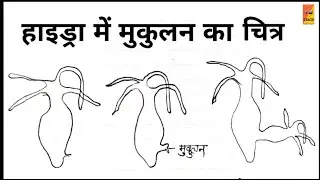 हाइड्रा में मुकुलन का चित्र
मुकुलन